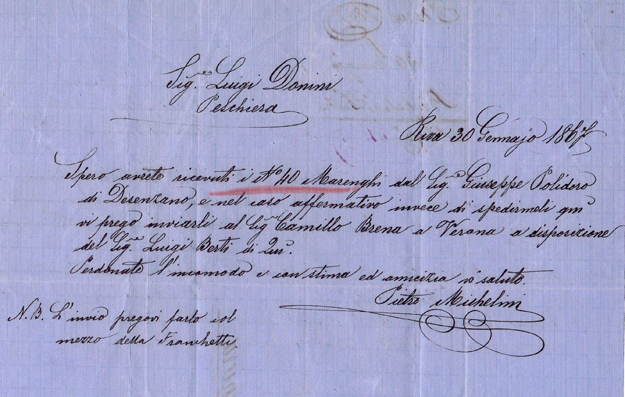 Sig.re Luigi Donini
Peschiera
Riva 30 Gennajo 1867
Spero avrete ricevuti i N.° 40 Marenghi dal Sig.r Giuseppe Polidoro
di Desenzano, e nel caso affermativo invece di spedirmeli qui
vi prego inviarli al Sig.r Camillo Brena a Verona a disposizione
del Sig.r Luigi Berti di Qui.
Perdonate l'incomodo e con stima ed amicizia vi saluto.
Pietro Michelini
N.B. L'invio pregovi farlo col
mezzo della Franchetti.